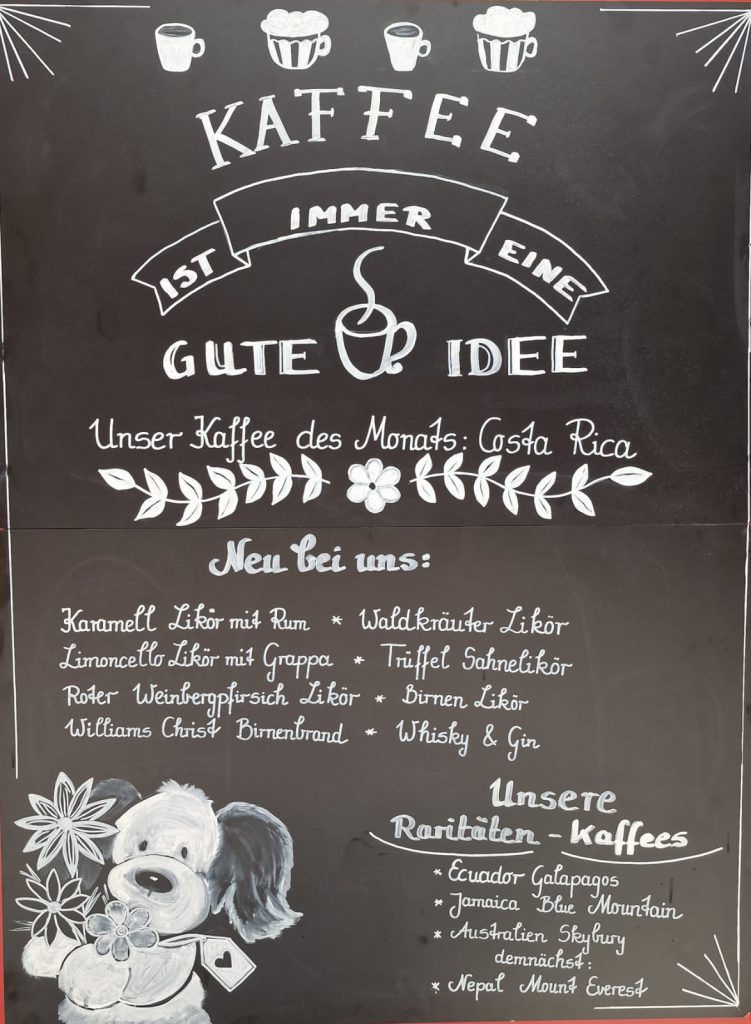 KAFFEE
IST IMMER EINE
GUTE IDEE
Unser Kaffee des Monats: Costa Rica
Neu bei uns:
Karamell Likör mit Rum * Waldkräuter Likör
Limoncello Likör mit Grappa * Trüffel Sahnelikör
Roter Weinbergpfirsich Likör * Birnen Likör
Williams Christ Birnenbrand * Whisky & Gin
Unsere
Raritäten - Kaffees
* Ecuador Galapagos
* Jamaica Blue Mountain
* Australien Skybury
demnächst:
* Nepal Mount Everest